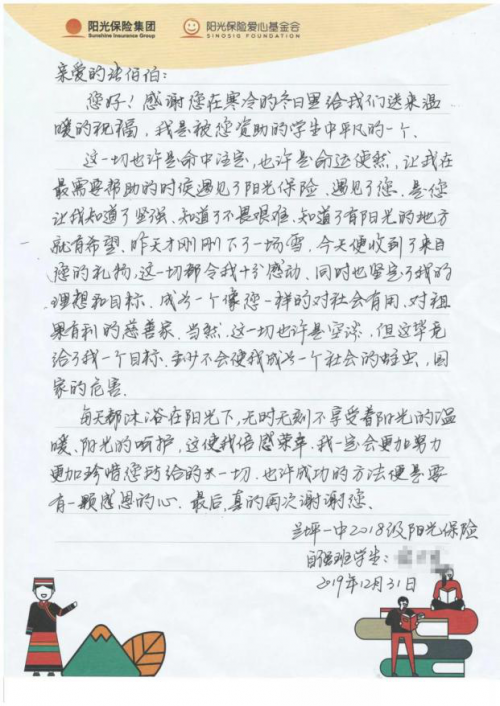 阳光保险集团 阳光保险爱心基金会
Sunshine Insurance Group SINOSIG FOUNDATION
亲爱的张伯伯：
您好！感谢您在寒冷的冬日里给我们送来温
暖的祝福，我是被您资助的学生中平凡的一个.
这一切也许是命中注定，也许是命运使然，让我在
最需要帮助的时候遇见了阳光保险.遇见了您、是您
让我知道了坚强、知道了不畏艰难.知道了有阳光的地方
就有希望.昨天才刚刚下了一场雪，今天便收到了来自
您的礼物，这一切都令我十分感动.同时也坚定了我的
理想和目标.成为一个像您一样的对社会有用、对祖
果有利的慈善家.当然.这一切也许是空谈.但这毕竟
给了我一个目标.至少不会使我成为一个社会的蛀虫，国
家的危害.
每天都沐浴在阳光下，无时无刻不享受着阳光的温
暖、阳光的呵护，这使我倍感荣幸.我一定会更加努力
更加珍惜您所给的一切.也许成功的方法便是要
有一颗感恩的心.最后，真的再次谢谢您.
兰坪一中2018级阳光保险
自强班学生：
2019年12月31日